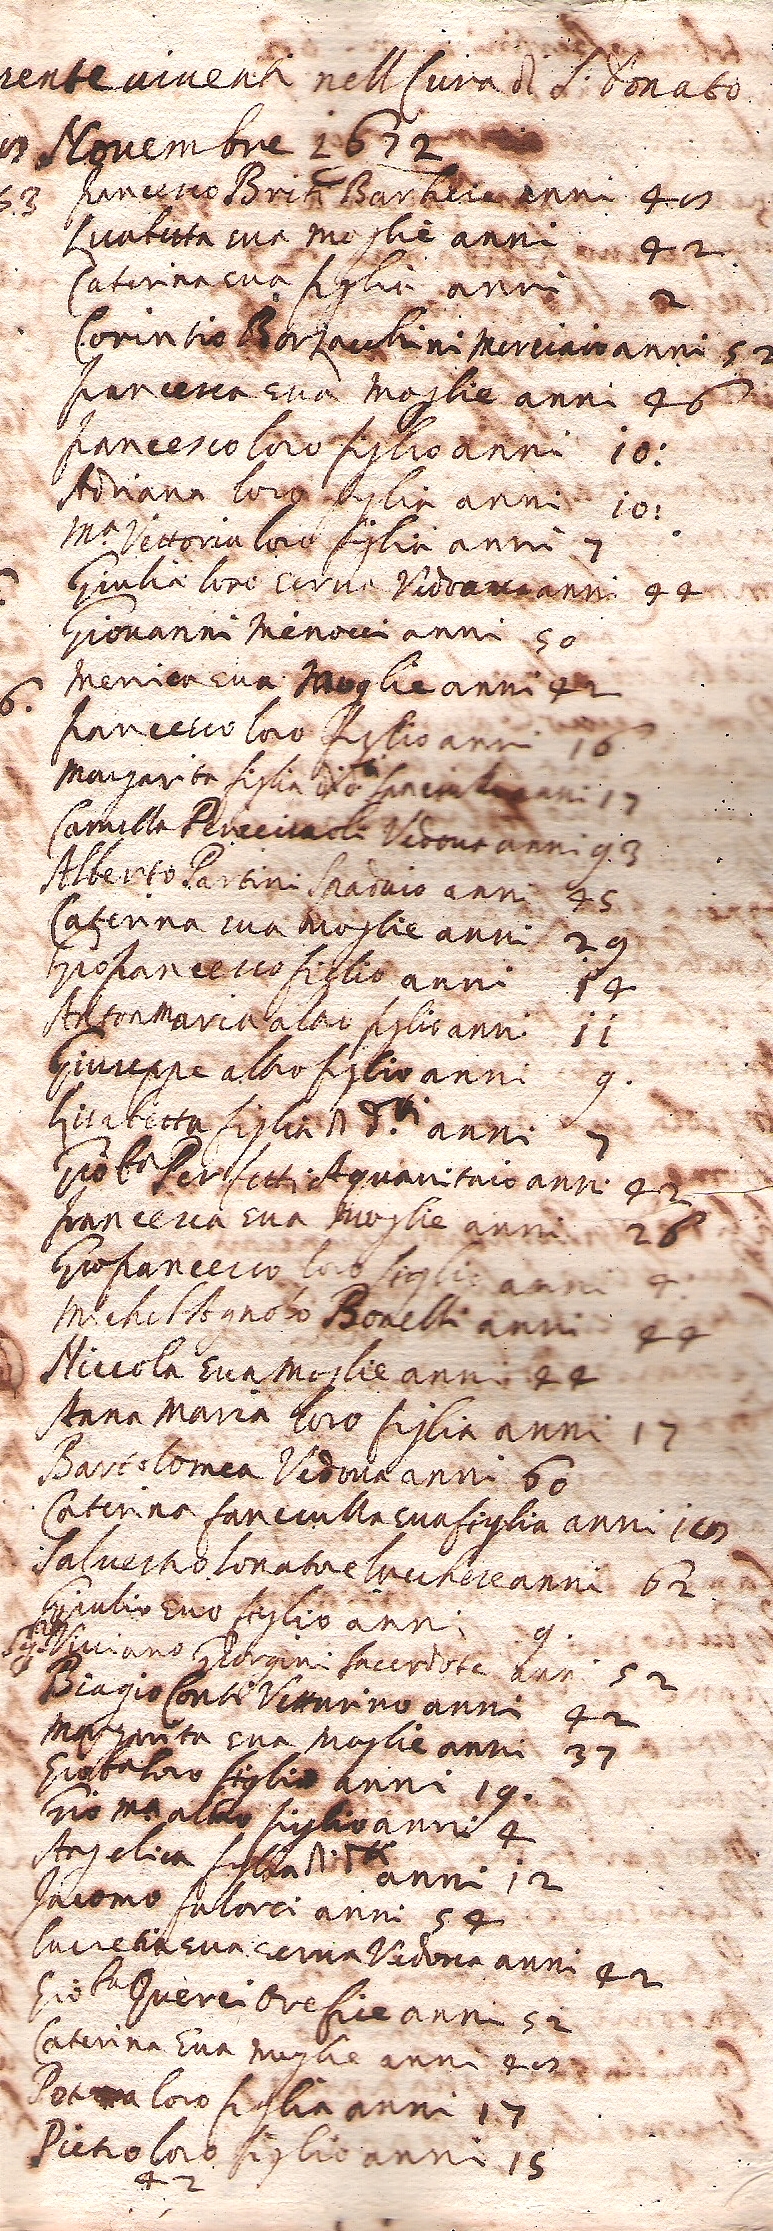 rente viventi nell Cura di S: Donato
Novembre 1672
53 francesco Briti Barbiere anni 45
Lisabetta sua moglie anni 42
Caterina sua figlia anni 2
Corintio Borzacchini Merciaio anni 52
francesca sua moglie anni 46
francesco loro figlio anni 10:
Adriana loro figlia anni 10:
Mª Vettoria loro figlia anni 7
Giulia loro serva Vedova anni 44
Giovanni Menocci anni 50
6. Menica sua Moglie anni 42
francesco loro figlio anni 16
Margarita figlia di dⁱ fanciulla anni 17
Camilla Vedova anni 93
Alberto Partini Spadaio anni 45
Caterina sua moglie anni 29
Giofrancesco figlio anni 14
Antonmaria altro figlio anni 11
Giuseppe altro figlio anni 9.
Lisabetta figlia di d.ᵗⁱ anni 7
Gio bª Perfetti Aquavitaio anni 42
francesca sua moglie anni 26
Giofrancesco loro figlio anni 4
Michelagnolo Bonelli anni 44
Niccola sua Moglie anni 44
Anna Maria loro figlia anni 17
Bartolomea Vedova anni 60
Caterina fanciulla sua figlia anni 15
Salvestro lonatore lucchese anni 62
Giulio suo figlio anni 9.
Viviano Giorgini Sacerdote anni 52
Biagio Conti Vetturino anni 42
Margarita sua Moglie anni 37
Giobª loro figlio anni 19.
Gio Mª altro figlio anni 4
Angelica figlia di dᵗⁱ anni 12
Jacomo falorci anni 54
lucretia sua serva Vedova anni 42
Gio bª Querci Orefice anni 52
Caterina sua moglie anni 45
loro figlia anni 17
Pietro loro figlio anni 15
42